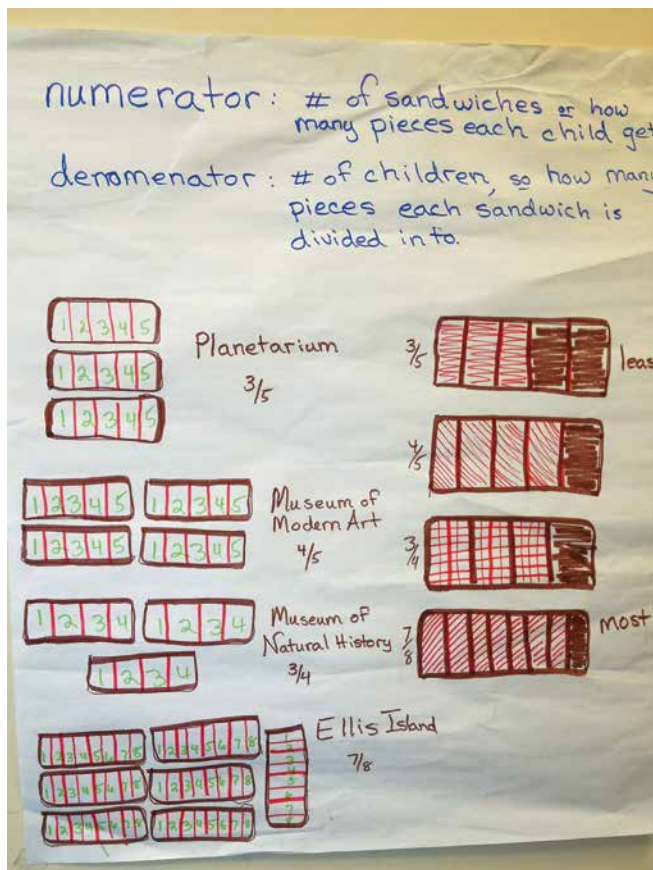 numerator: # of sandwiches or how
many pieces each child get
denomenator: # of children, so how many
pieces each sandwich is
divided in to.
1 2 3 4 5
1 2 3 4 5
1 2 3 4 5
Planetarium
3/5
1 2 3 4 5
1 2 3 4 5
1 2 3 4 5
1 2 3 4 5
Museum of
Modern Art
4/5
1 2 3 4
1 2 3 4
1 2 3 4
Museum of
Natural History
3/4
1 2 3 4 5 6 7 8
1 2 3 4 5 6 7 8
1 2 3 4 5 6 7 8
1 2 3 4 5 6 7 8
1 2 3 4 5 6 7 8
1 2 3 4 5 6 7 8
Ellis Island
7/8
3/5
leas
4/5
3/4
7/8
most